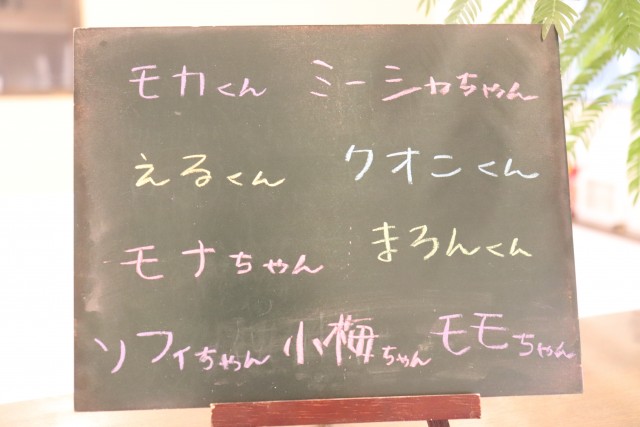 モカくん ミーシャちゃん
えるくん クオンくん
モナちゃん まろんくん
ソフィちゃん 小梅ちゃん モモちゃん